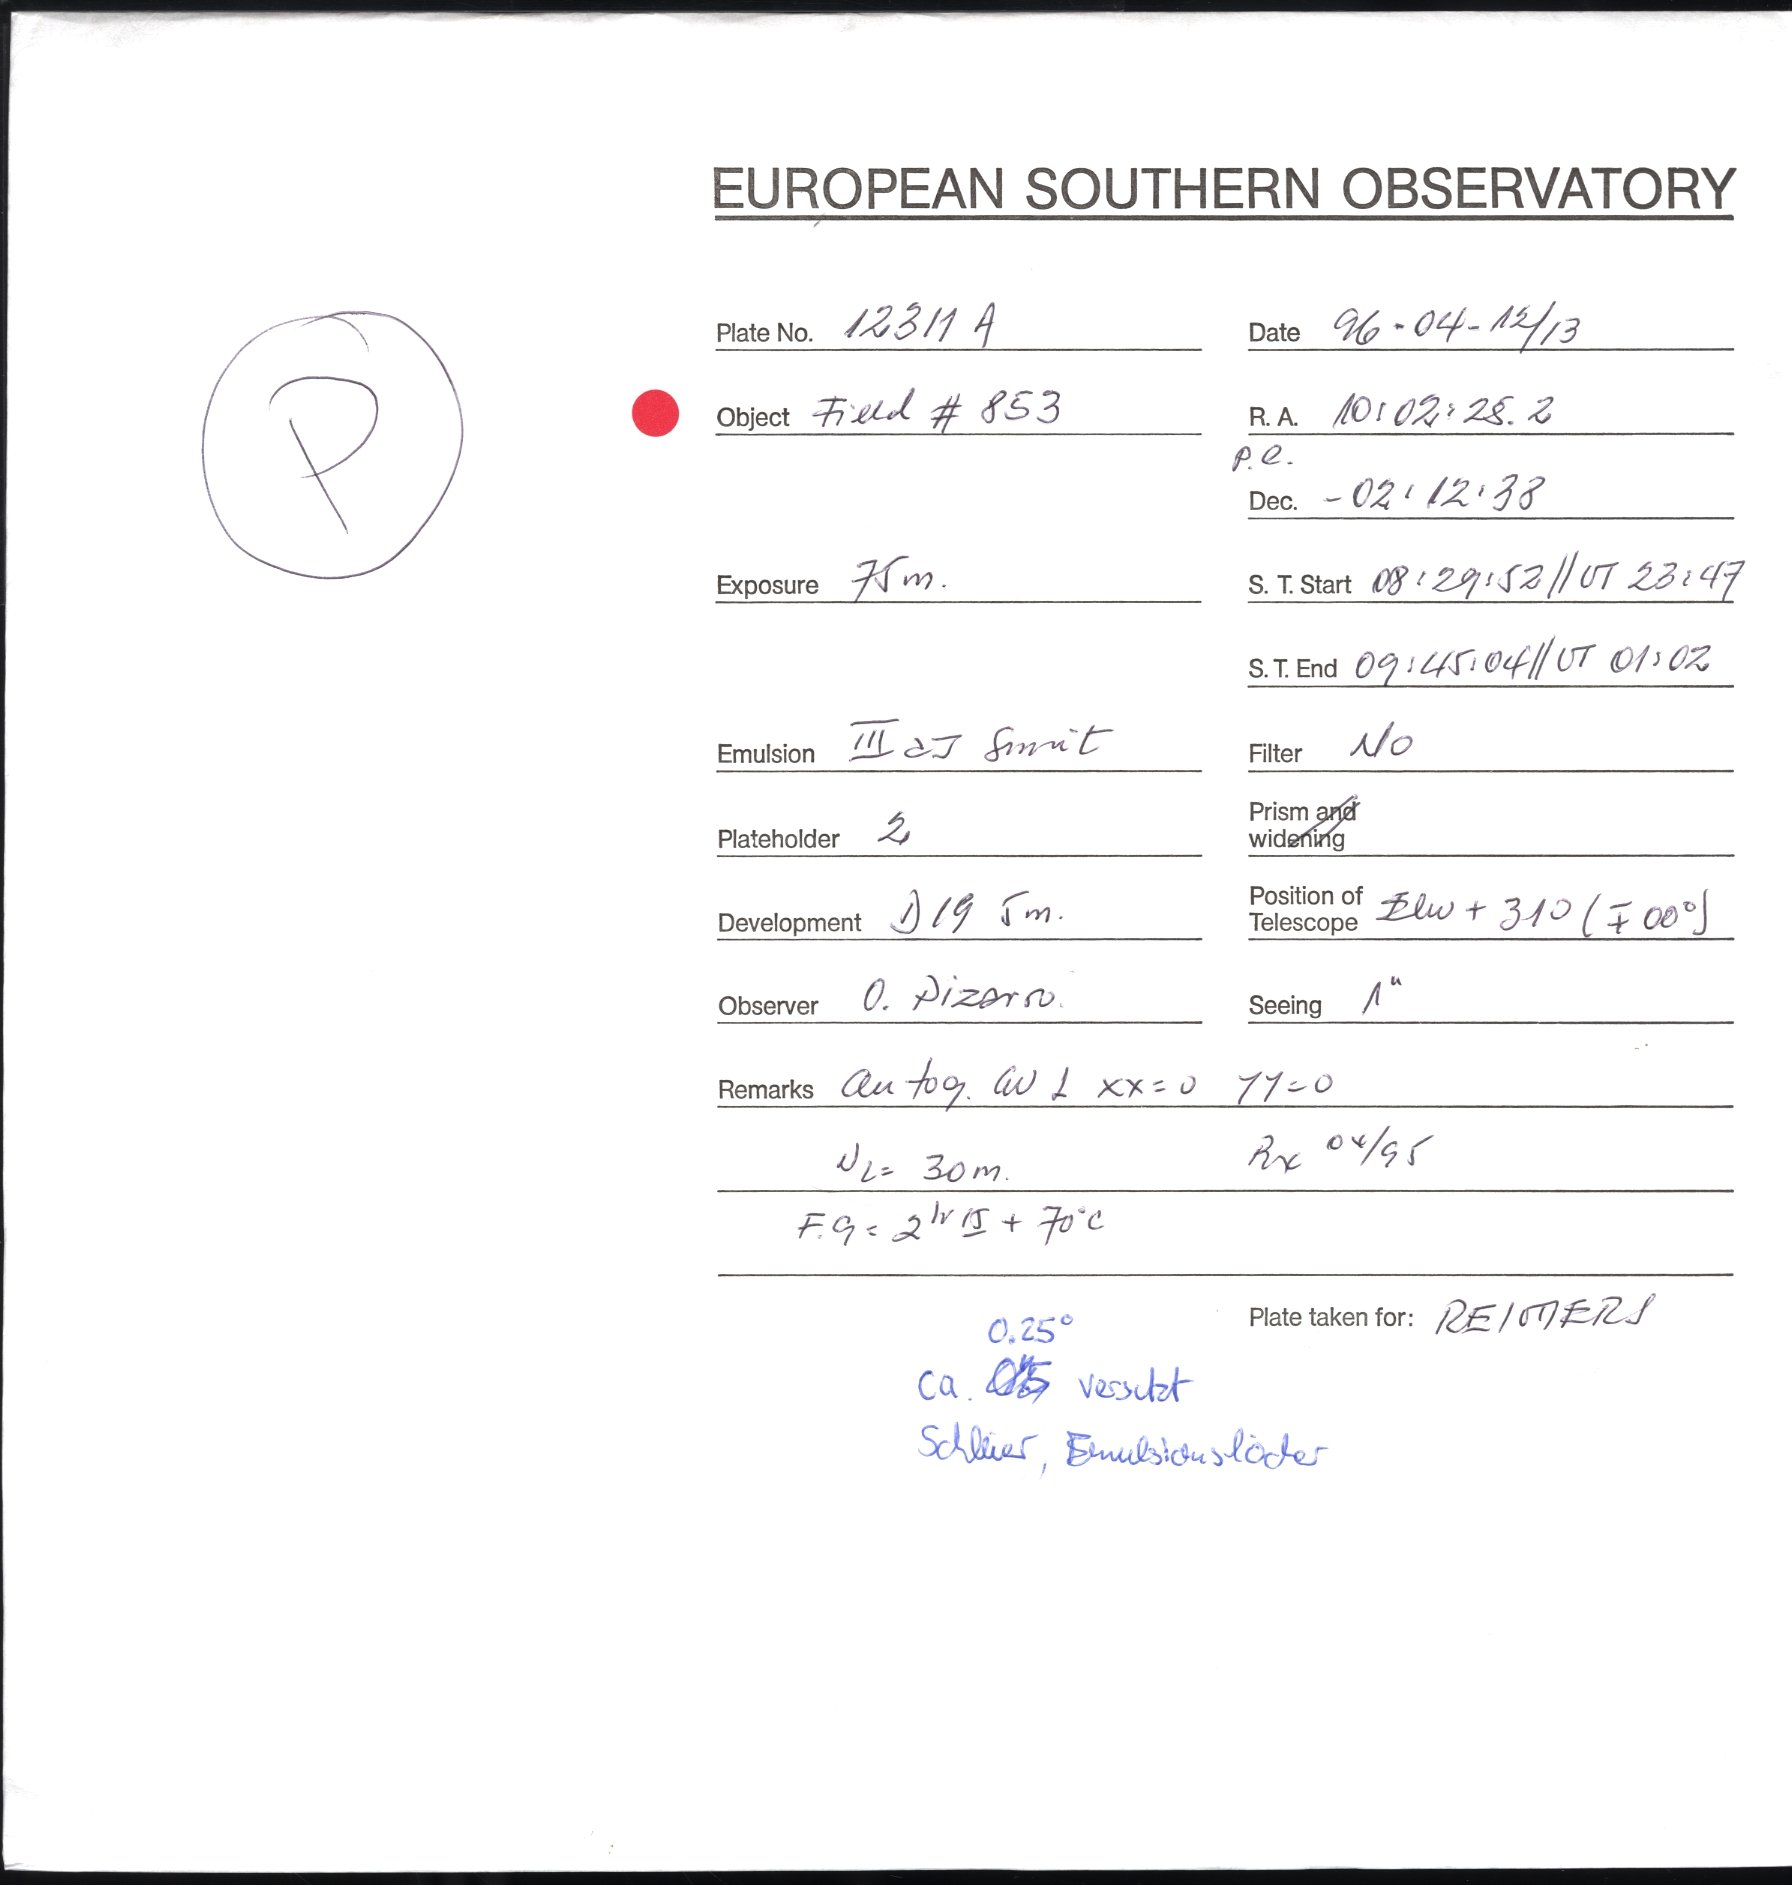 EUROPEAN SOUTHERN OBSERVATORY
P
Plate No. 12311 A
Date 96-04-12/13
Object Field # 853
R. A. 10:02:28.2
P.C.
Dec. -02:12:38
Exposure 75m.
S. T. Start 08:29:52//UT 23:47
S. T. End 09:45:04//UT 01:02
Emulsion III aJ
Filter No
Plateholder 2
Prism and widening
Development D19 5m.
Position of Telescope + 310 (∓ 00°)
Observer O. Pizarro.
Seeing 1"
Remarks Autog. xx=0 yy=0
N2= 30m. Rx 04/95
F.G= 2hr 15 + 70°C
Plate taken for: REIMERS
0.25°
ca. versetzt
Schleier, Emulsionslöcher